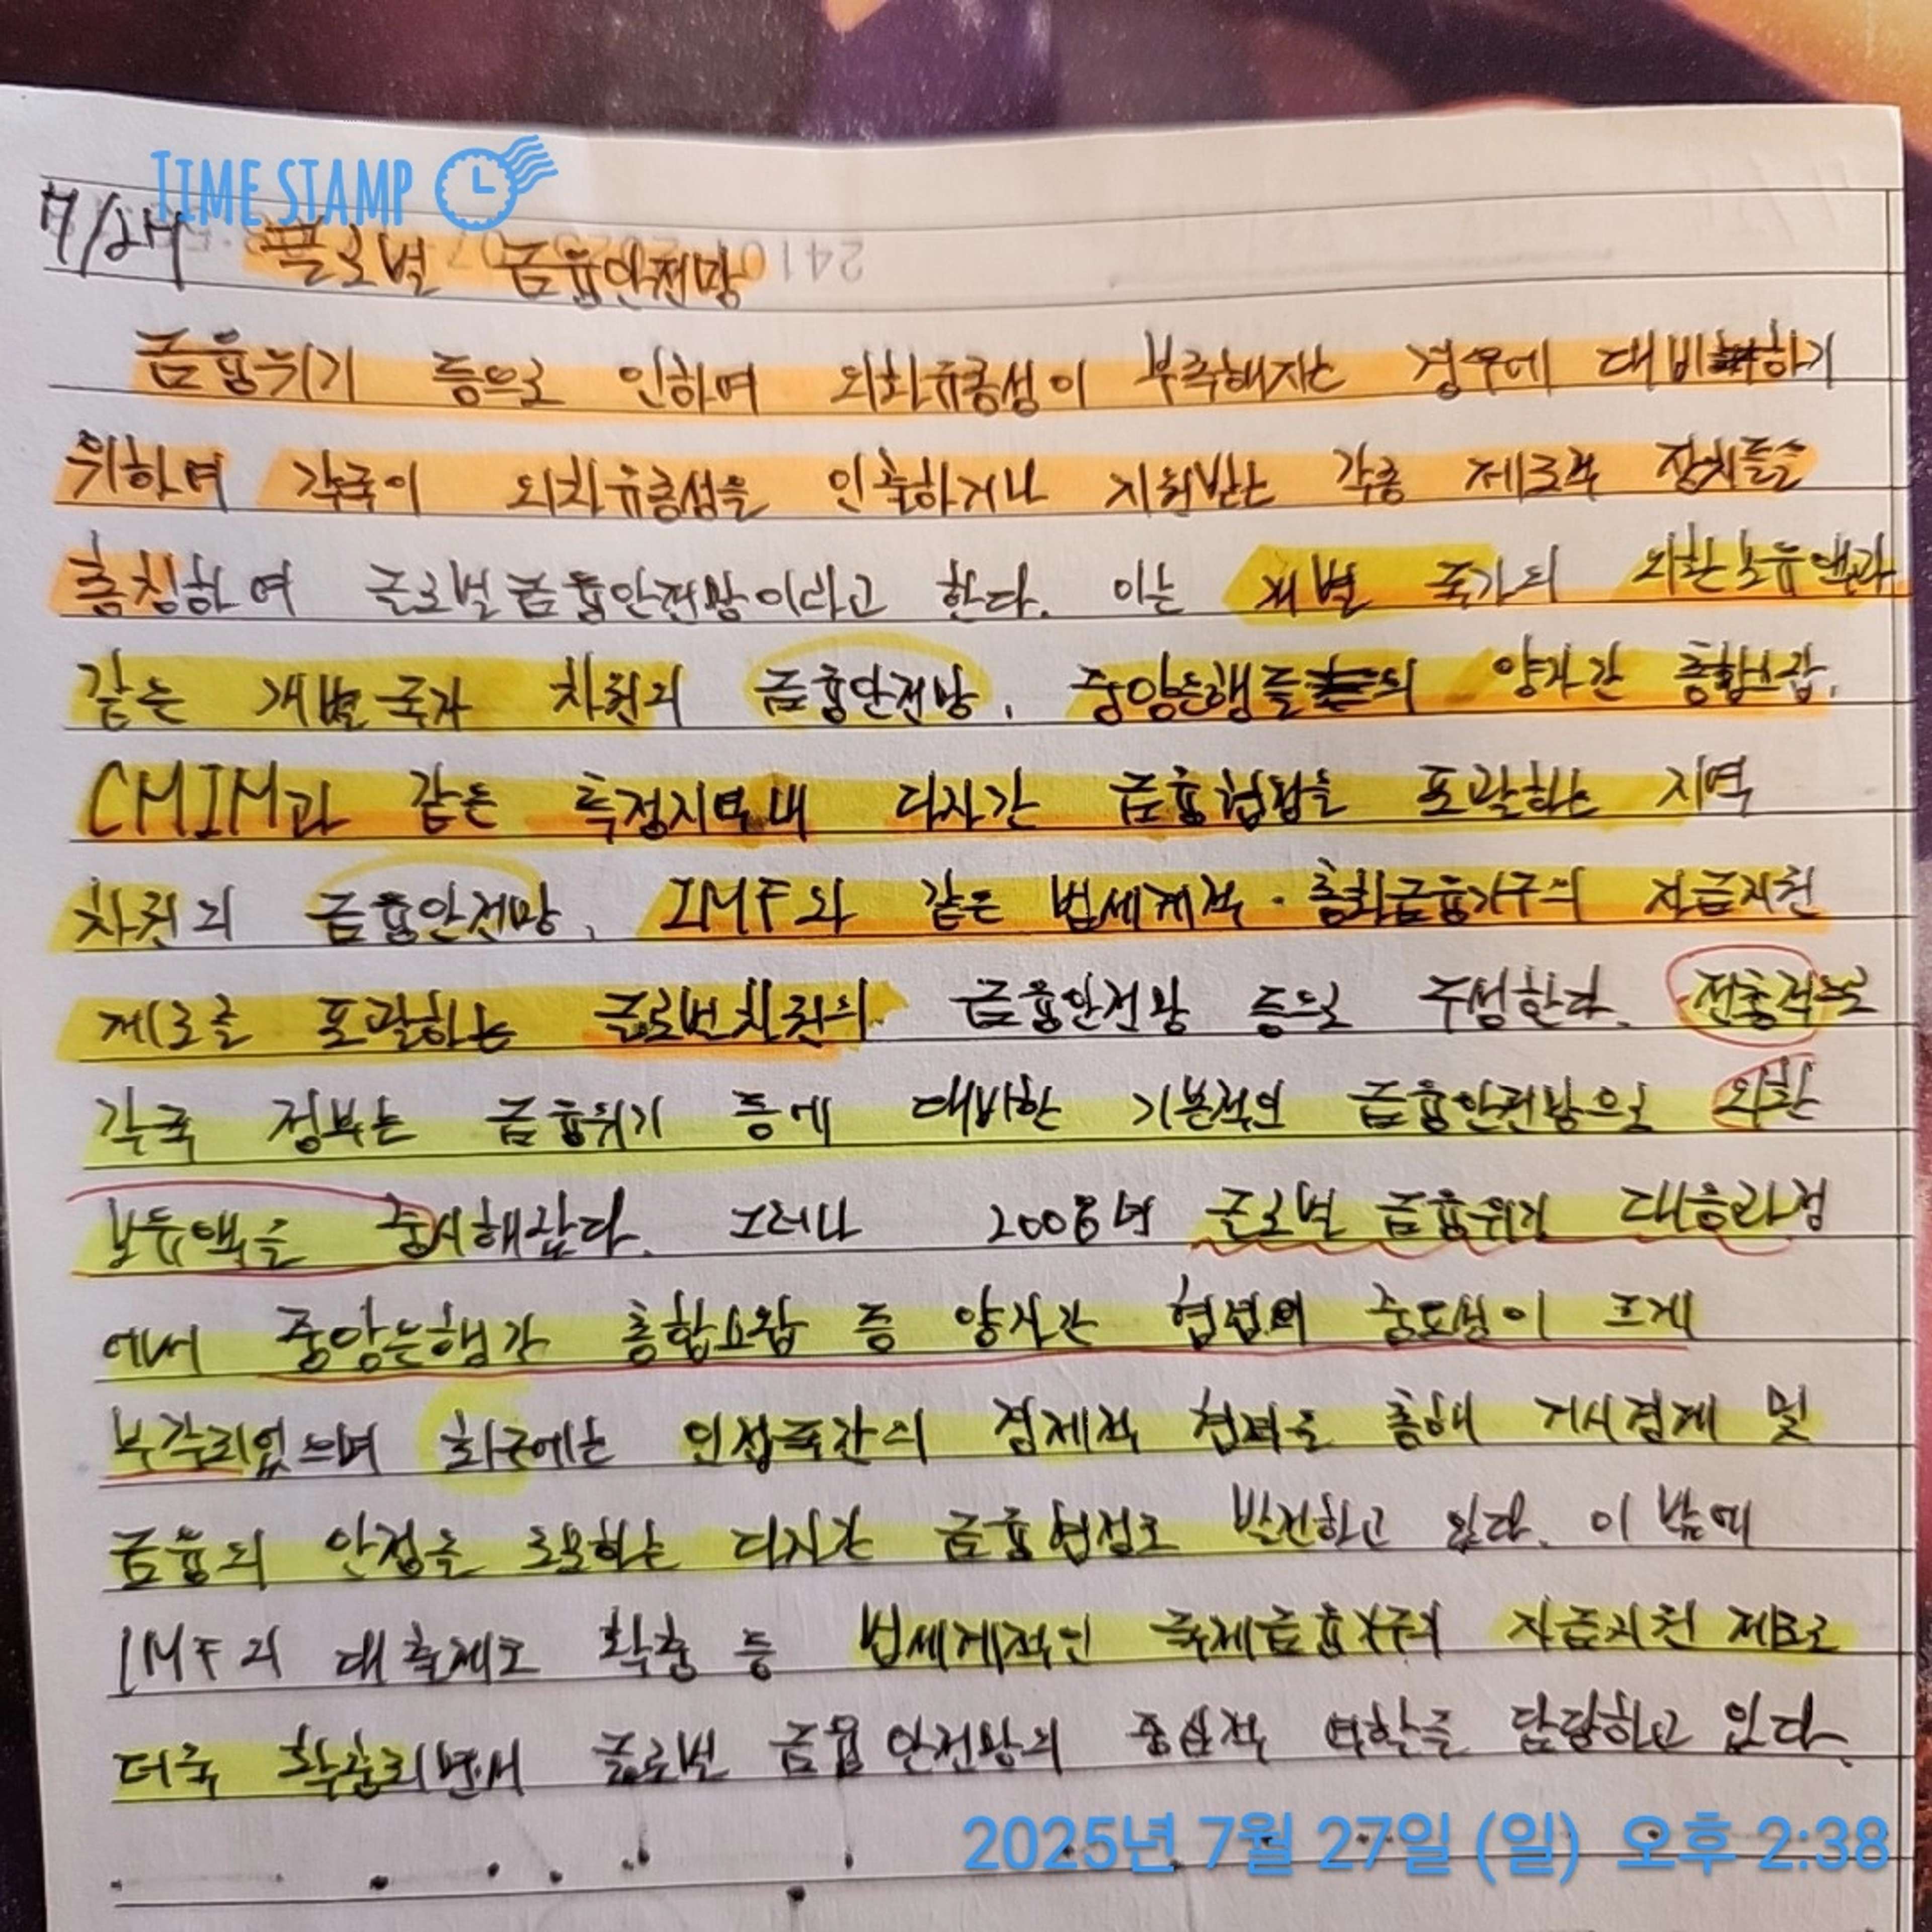 TIME STAMP
7/27 글로벌 금융안전망
금융위기 등으로 인하여 외화유동성이 부족해지는 경우에 대비하기
위하여 각국이 외화유동성을 인출하거나 지원받는 각종 제도적 장치들을
총칭하여 글로벌금융안전망이라고 한다. 이는 개별 국가의 외환보유액과
같은 개별국가 차원의 금융안전망, 중앙은행들의 양자간 통화스왑,
CMIM과 같은 특정지역내 다자간 금융협정을 포괄하는 지역
차원의 금융안전망, IMF와 같은 범세계적·금융기구의 자금지원
제도를 포괄하는 글로벌차원의 금융안전망 등으로 구성한다. 전통적으로
각국 정부는 금융위기 등에 대비한 기본적인 금융안전망으로 외환
보유액을 중시해왔다. 그러나 2008년 글로벌 금융위기 대응과정
에서 중앙은행간 통화스왑 등 양자간 협정의 중요성이 크게
부각되었으며 최근에는 인접국간의 경제적 협력을 통해 거시경제 및
금융의 안정을 도모하는 다자간 금융협정도 발전하고 있다. 이 밖에
IMF의 대출제도 확충 등 범세계적인 국제금융기구의 자금지원 제도도
더욱 확충되면서 글로벌 금융안전망의 중심적 역할을 담당하고 있다.
2025년 7월 27일 (일) 오후 2:38